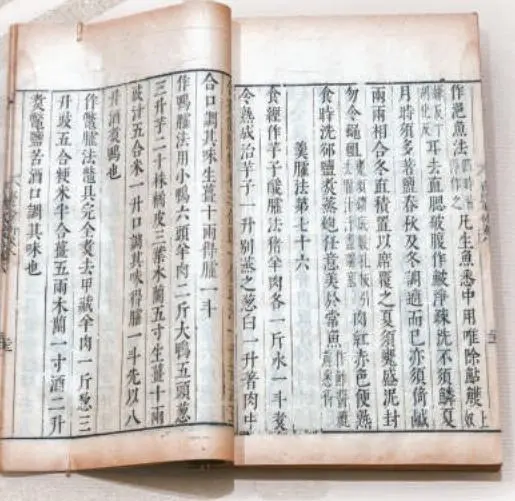 作浥魚法四時皆得作之凡生魚悉中用唯除鮎鱯上奴
嫌反下胡化反耳去直鰓破腹作鮍淨疎洗不須鱗夏
月時須多著鹽春秋及冬調適而已亦須倚鹹
兩兩相合冬直積置以席覆之夏須甕盛泥封
勿令蠅蛆甕須鑽底數孔拔引去腥汁汁盡還塞肉紅赤色便熟
食時洗却鹽煑蒸炮任意美於常魚作鮓醬爊煎悉得
羮臛法第七十六
食經作芋子酸臛法猪羊肉各一斤水一斗煑
令熟成治芋子一升別蒸之葱白一升著肉中
合口調其味生薑十兩得臛一斗
作鴨臛法用小鴨六頭羊肉二斤大鴨五頭葱
三升芋二十株橘皮三葉木蘭五寸生薑十兩
豉汁五合米一升口調其味得臛一斗先以八
升酒煑鴨也
作鼈臛法鼈具完全煑去甲藏羊肉一斤葱三
升豉五合粳米半合薑五兩木蘭一寸酒二升
煑鼈鹽苦酒口調其味也